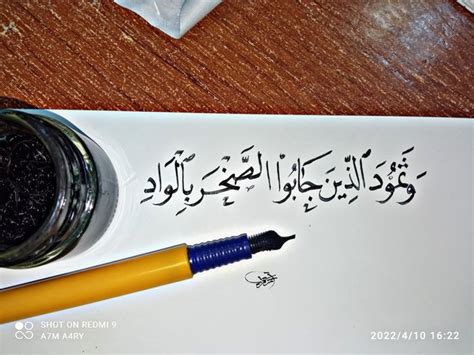 وَثَمُودَ الَّذِينَ جَابُوا الصَّخْرَ بِالْوَادِ
SHOT ON REDMI 9
A7M A4RY
2022/4/10 16:22